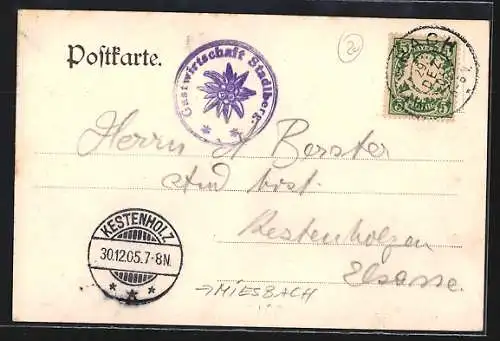 Postkarte.
Gastwirtschaft Stadlberg.
20
5 5
Herrn A Berster
Kestenholzen
Elsasse.
KESTENHOLZ
30.12.05.7-8N.
→ MIESBACH